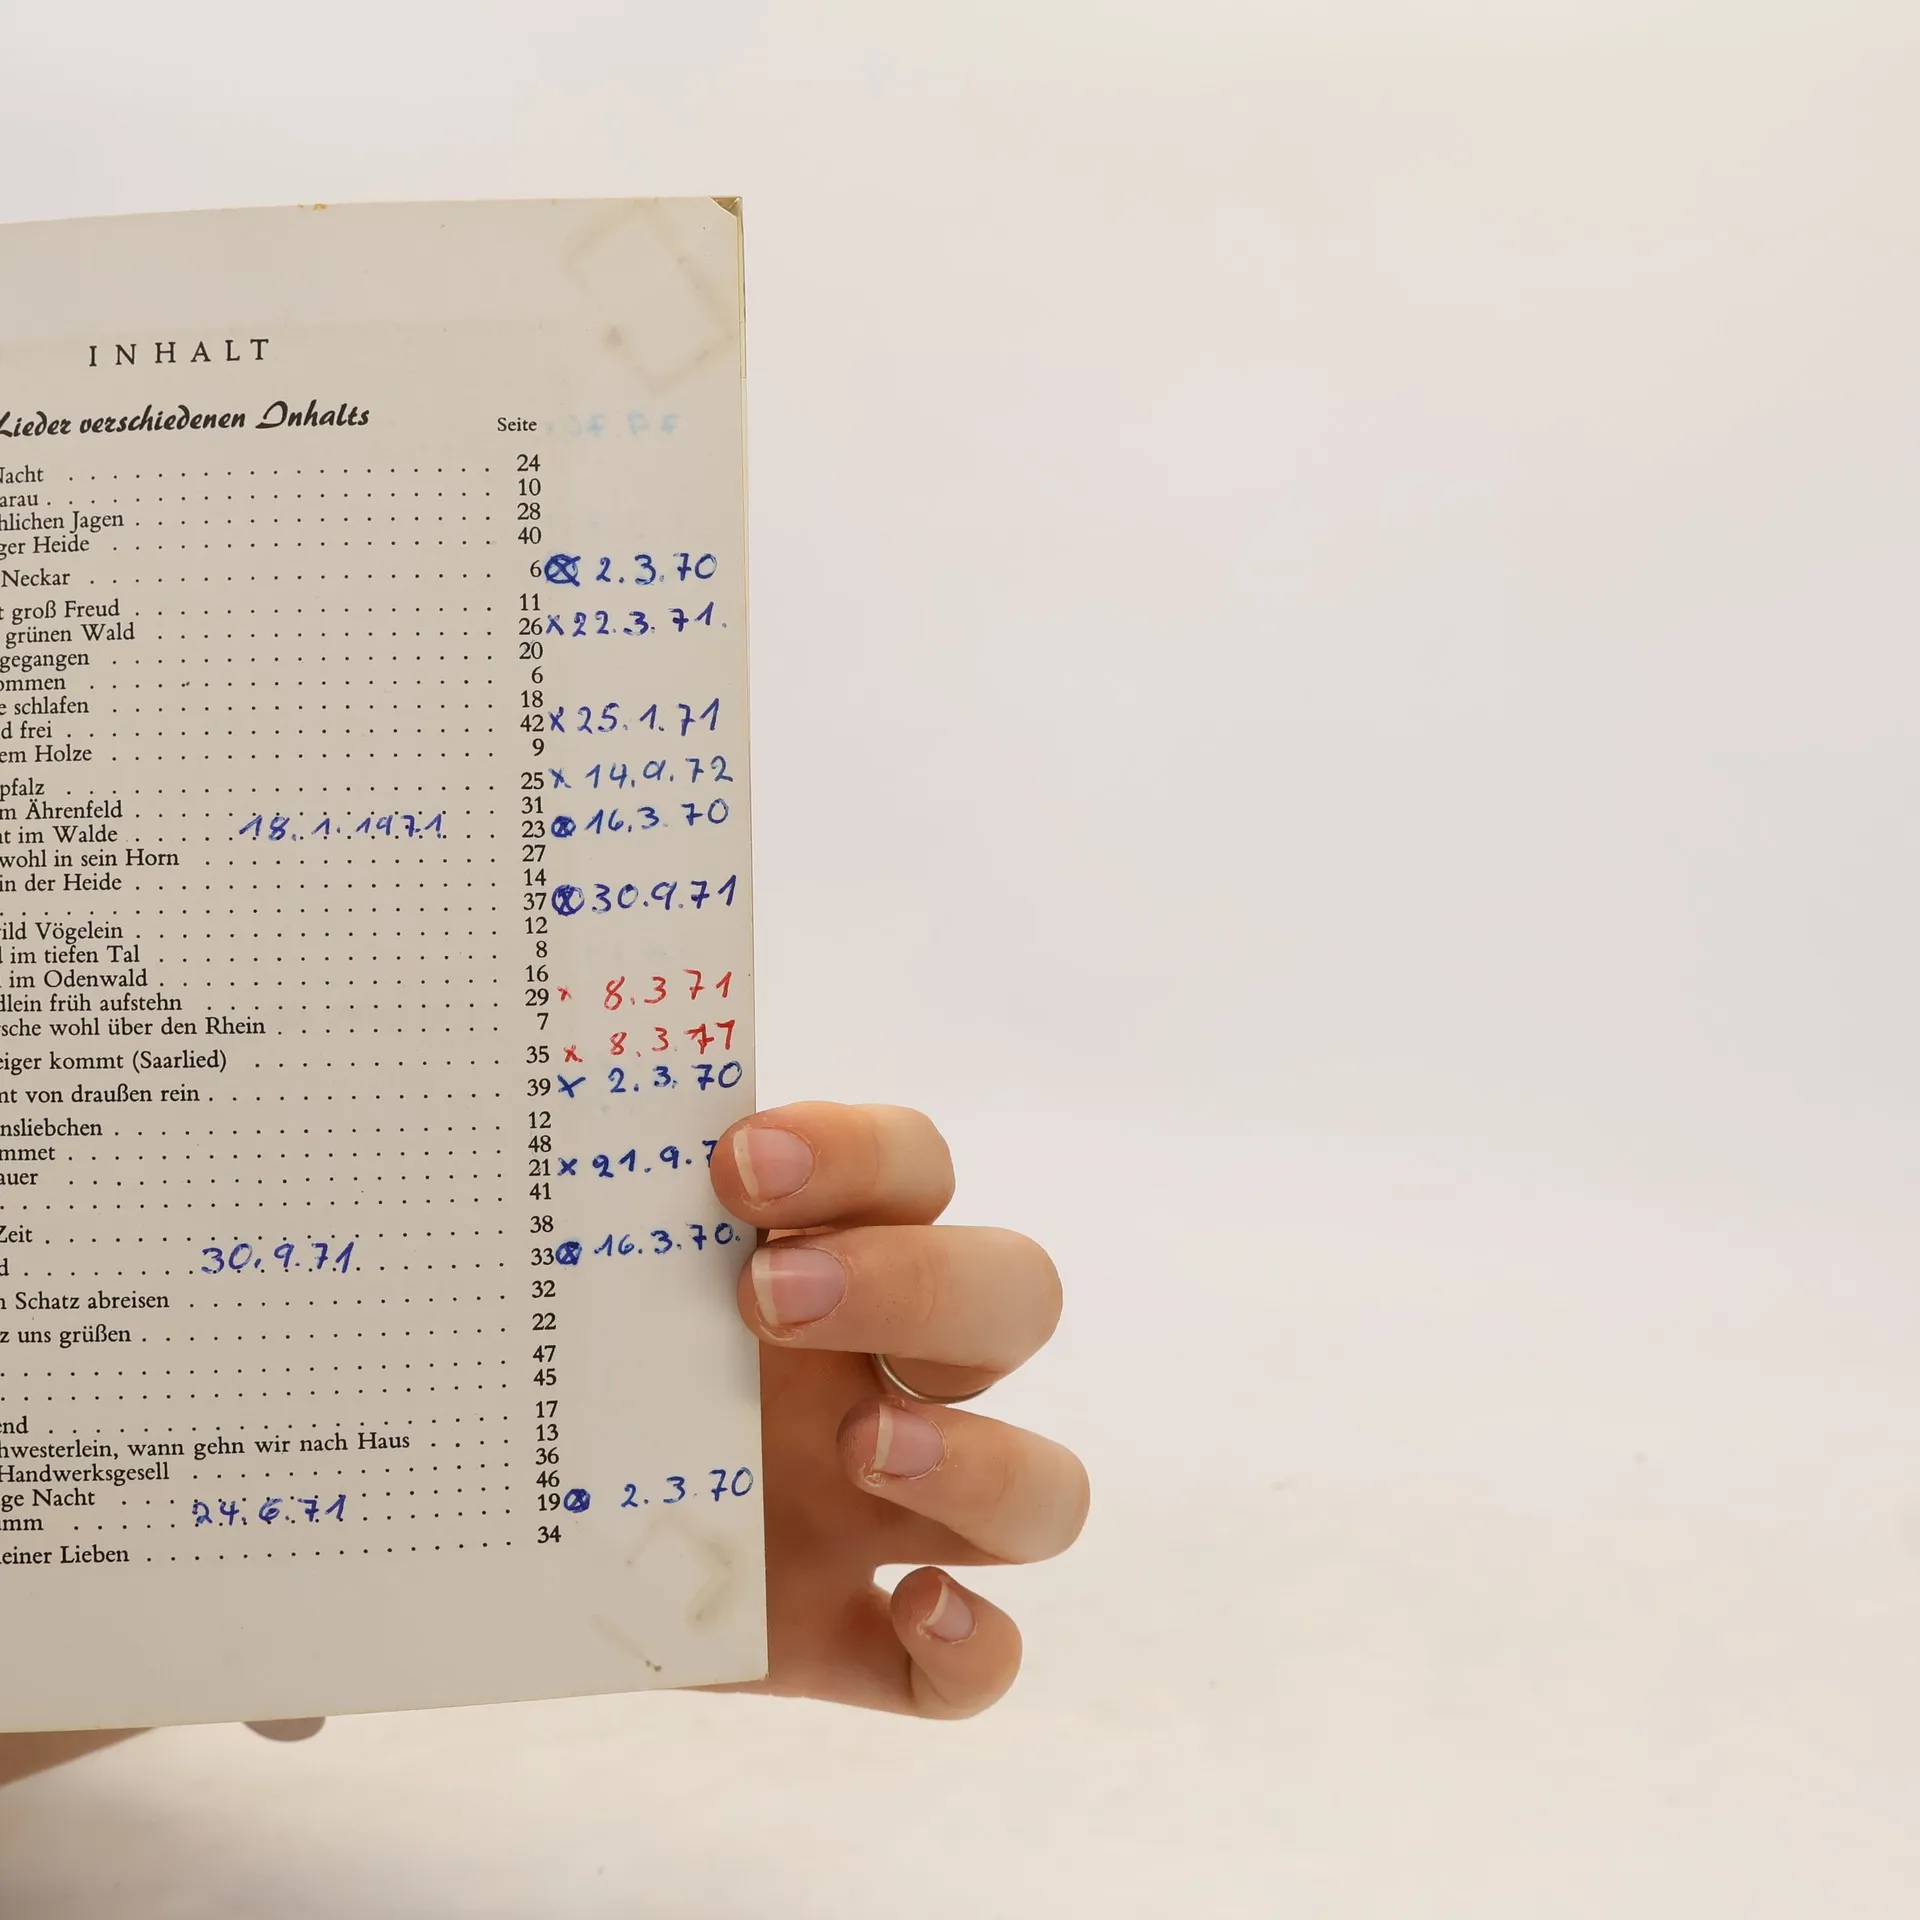 INHALT
Lieder verschiedenen Inhalts Seite
Nacht . . . . . . . . . . . . . . . . . . . 24
arau . . . . . . . . . . . . . . . . . . . . 10
hlichen Jagen . . . . . . . . . . . . . . . . 28
ger Heide . . . . . . . . . . . . . . . . . 40
Neckar . . . . . . . . . . . . . . . . . . 6 ⊗ 2.3.70
t groß Freud . . . . . . . . . . . . . . . . 11
grünen Wald . . . . . . . . . . . . . . . 26 x 22.3.71.
gegangen . . . . . . . . . . . . . . . . . 20
ommen . . . . . . . . . . . . . . . . . . 6
e schlafen . . . . . . . . . . . . . . . . . 18
d frei . . . . . . . . . . . . . . . . . . . 42 x 25.1.71
em Holze . . . . . . . . . . . . . . . . . 9
pfalz . . . . . . . . . . . . . . . . . . . 25 x 14.9.72
m Ährenfeld . . . . . . . . . . . . . . . . 31
ht im Walde . . . . . 18.1.1971 . . 23 ⊗ 16.3.70
wohl in sein Horn . . . . . . . . . . . . . 27
in der Heide . . . . . . . . . . . . . . . . 14
. . . . . . . . . . . . . . . . . . . . . . 37 ⊗ 30.9.71
ild Vögelein . . . . . . . . . . . . . . . . 12
l im tiefen Tal . . . . . . . . . . . . . . . 8
im Odenwald . . . . . . . . . . . . . . . 16
dlein früh aufstehn . . . . . . . . . . . . . 29 x 8.3 71
rsche wohl über den Rhein . . . . . . . . . . 7
eiger kommt (Saarlied) . . . . . . . . . . . 35 x 8.3.71
mt von draußen rein . . . . . . . . . . . . . 39 x 2.3.70
nsliebchen . . . . . . . . . . . . . . . . . 12
mmet . . . . . . . . . . . . . . . . . . . 48
auer . . . . . . . . . . . . . . . . . . . 21 x 21.9.7
. . . . . . . . . . . . . . . . . . . . . . 41
Zeit . . . . . . . . . . . . . . . . . . . . 38
d . . . . . . . . 30.9.71. . . . . . . 33 ⊗ 16.3.70.
n Schatz abreisen . . . . . . . . . . . . . . 32
z uns grüßen . . . . . . . . . . . . . . . . 22
. . . . . . . . . . . . . . . . . . . . . . 47
. . . . . . . . . . . . . . . . . . . . . . 45
end . . . . . . . . . . . . . . . . . . . . 17
hwesterlein, wann gehn wir nach Haus . . . . 13
Handwerksgesell . . . . . . . . . . . . . . 36
ge Nacht . . . . . . . . . . . . . . . . . 46
umm . . . . . 24.6.71 . . . . . . . 19 ⊗ 2.3.70
einer Lieben . . . . . . . . . . . . . . . . 34